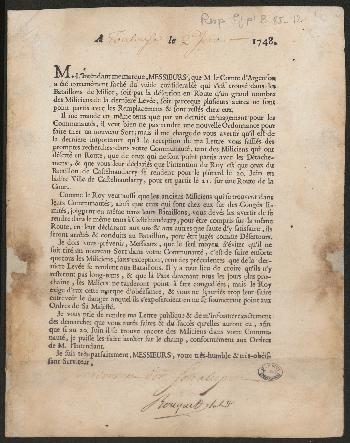 A Toulouse le 2 Juin 1748.
M. l'Intendant me marque, MESSIEURS, que M. le Comte d'Argenson
a été extrêmement fâché du vuide considérable qui s'est trouvé dans les
Bataillons de Milice, soit par la désertion en Route d'un grand nombre
des Miliciens de la derniere Levée, soit parce que plusieurs autres ne sont
point partis avec les Remplacemens & sont restés chez eux.
Il me mande en même tems que par un dernier ménagement pour les
Communautés, il veut bien ne pas rendre une nouvelle Ordonnance pour
faire tirer un nouveau Sort; mais il me charge de vous avertir qu'il est de
la derniere importance qu'à la reception de ma Lettre vous fassiés des
promptes recherches dans votre Communauté, tant des Miliciens qui ont
déserté en Route, que de ceux qui ne sont point partis avec les Détache-
mens, & que vous leur déclariés que l'intention du Roy est que ceux du
Bataillon de Castelnaudarry se rendent pour le plûtard le 20. Juin en
ladite Ville de Castelnaudarry, pour en partir le 21. sur une Route de la
Cour.
Comme le Roy veut aussi que les anciens Miliciens qui se trouvent dans
leurs Communautés, ainsi que ceux qui sont chez eux sur des Congés li-
mités, joignent en même tems leurs Bataillons, vous devés les avertir de se
rendre dans le même tems à Castelnaudarry, pour être compris sur la même
Route, en leur déclarant aux uns & aux autres que faute d'y satisfaire, ils
seront arrêtés & conduits au Bataillon, pour être jugés comme Déserteurs.
Je dois vous prévenir, Messieurs, que le seul moyen d'éviter qu'il ne
soit tiré un nouveau Sort dans votre Communauté, c'est de faire ensorte
que tous les Miliciens, sans exception, tant des précedentes que de la der-
niere Levée se rendent aux Bataillons. Il y a tout lieu de croire qu'ils n'y
resteront pas long-tems, & que la Paix devenant tous les jours plus pro-
chaine, les Milices ne tarderont point à être congediées; mais le Roy
exige d'eux cette marque d'obéissance, & vous ne sçauriés trop leur faire
entrevoir le danger auquel ils s'exposeroient en ne se soumettant point aux
Ordres de Sa Majesté.
Je vous prie de rendre ma Lettre publique & de m'informer exactement
des démarches que vous aurés faites & du succès qu'elles auront eu, afin
que si au 20. Juin il se trouve encore des Miliciens dans votre Commu-
nauté, je puisse les faire arrêter sur le champ, conformément aux Ordres
de M. l'Intendant.
Je suis très-parfaitement, MESSIEURS, votre très-humble & très-obéïs-
sant Serviteur,